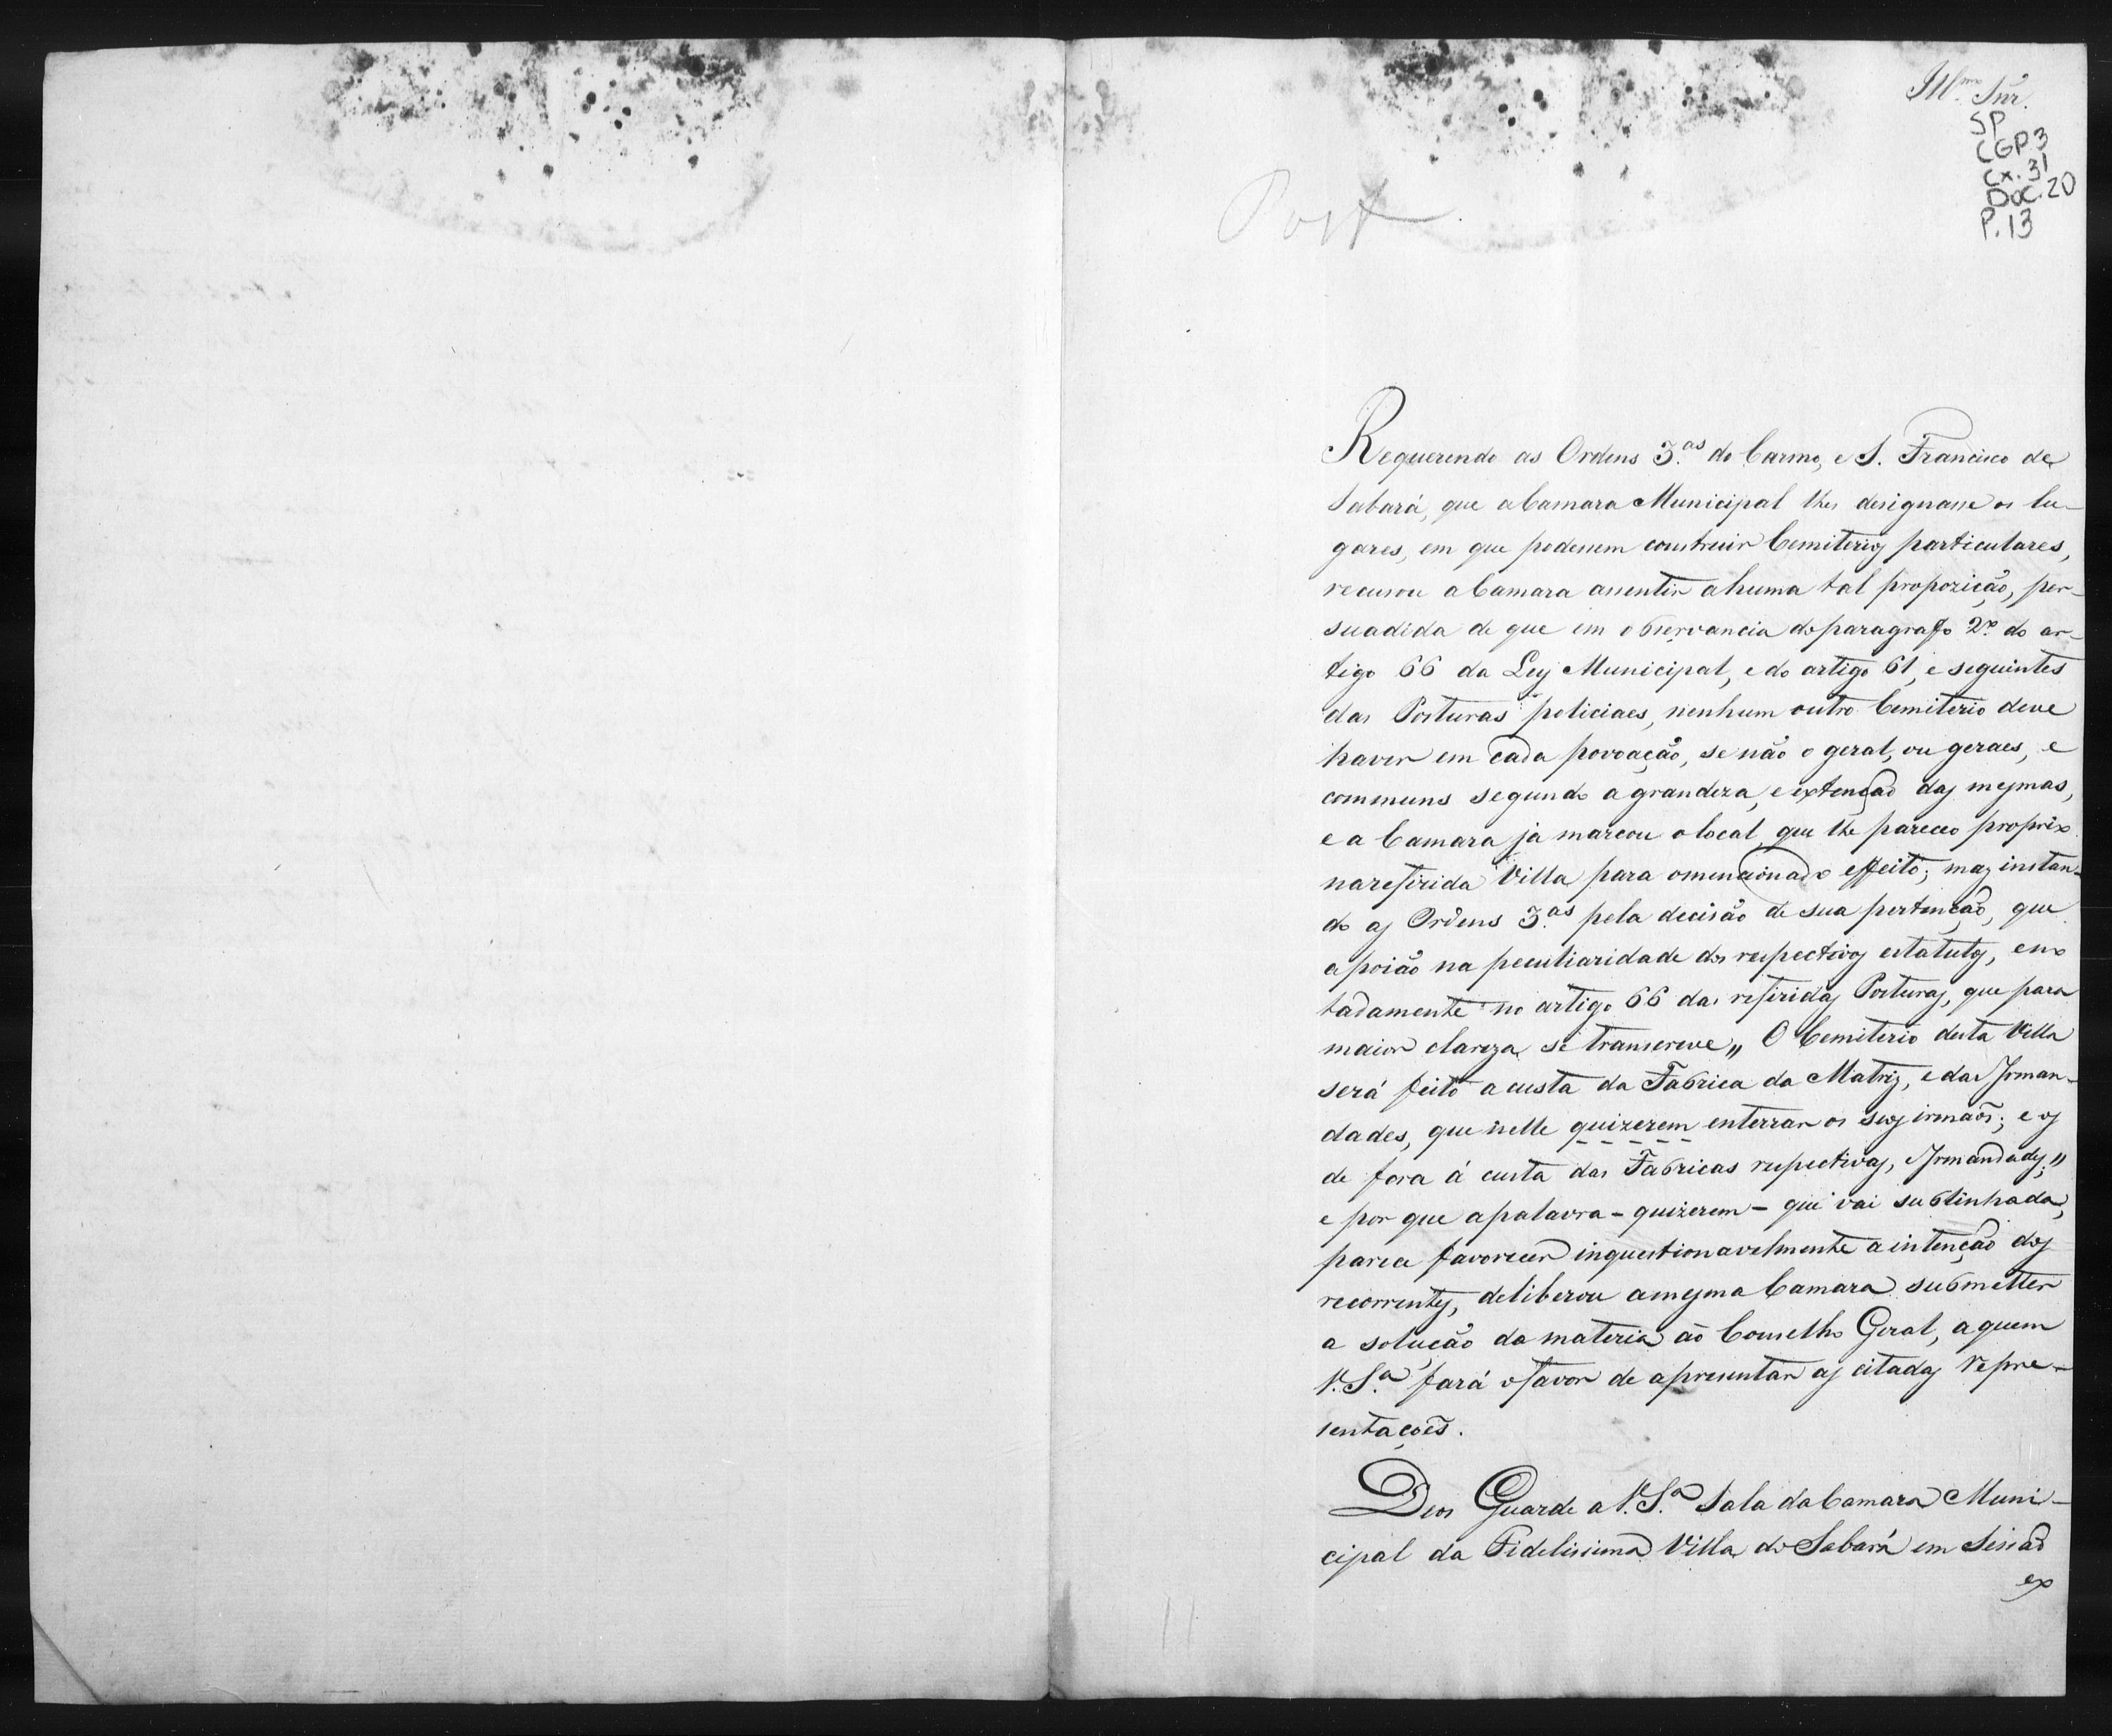 Ill.mo Snr.
SP
CGP3
Cx. 31
Doc. 20
P. 13
Post
Requerendo as Ordens 3.as do Carmo, e S. Francisco de
Sabará, que a Camara Municipal lhes designasse os lu-
gares, em que podessem construir Cemiterios particulares,
recusou a Camara assentir a huma tal propozição, per-
suadida de que em observancia do paragrafo 2.o do ar-
tigo 66 da Ley Municipal, e do artigo 61, e seguintes
das Posturas policiaes, nenhum outro Cemiterio deve
haver em cada povoação, se não o geral, ou geraes, e
communs segundo a grandeza, e extenção das mesmas,
e a Camara ja marcou o local, que lhe pareceo proprio
na referida Villa para o mencionado effeito; mas instan-
do as Ordens 3.as pela decisão de sua pertenção, que
apoião na peculiaridade dos respectivos estatutos, e no
tadamente no artigo 66 das referidas Posturas, que para
maior clareza se transcreve „ O Cemiterio desta Villa
será feito a custa da Fabrica da Matriz, e das Irman-
dades, que nelle quizerem enterrar os seos irmaõs; e os
de fora á custa das Fabricas respectivas, e Irmandades; „
e por que a palavra - quizerem - que vai sublinhada,
parece favorecer inquestionavelmente a intenção dos
recorrentes, deliberou a mesma Camara submetter
a solução da materia ao Conselho Geral, a quem
V. S.a fará o favor de apresentar as citadas repre-
sentaçoẽs.
Deos Guarde a V. S.a Sala da Camara Muni-
cipal da Fidelissima Villa do Sabará em Sessaõ
ex
11